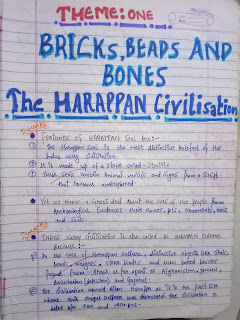 THEME: ONE
BRICKS, BEADS AND
BONES
The HARAPPAN Civilisation
Features of HARAPPAN Seal are:-
① The Harappan Seal is the most distinctive artefact of the
Indus valley Civilisation
② It is made up of a stone called - Steatite
③ These Seals contain Animal motifs and signs from a Script
that remains undeciphered
Yet we know a Great deal about the lives of the people from
Archaeological evidences - their houses, pots, ornaments, tools
and Seals.
Indus valley Civilisation is also called as HARAPPAN CULTURE
Because:-
① In the case of Harappan Culture, distinctive objects like Seals,
beads, weights, stone blades and even baked bricks
found from Areas as far apart as Afghanistan, Jammu,
Baluchistan (Pakistan) and Gujarat.
② the Civilisation named After Harappa as it is the first site
where this unique Culture was discovered. the Civilisation is
dated b/w 2600 and 1900 BCE.